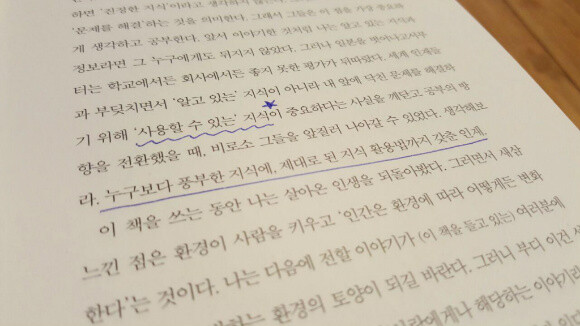 하면 '진정한 지식'이라고 생각하지 않는다.
'문제를 해결'하는 것을 의미한다. 그래서 그들은 이 점을 가장 중요하
게 생각하고 공부한다. 앞서 이야기한 것처럼 나는 알고 있는 지식과
정보라면 그 누구에게도 뒤지지 않았다. 그러나 일본을 벗어나고서부
터는 학교에서든 회사에서든 좋지 못한 평가가 뒤따랐다. 세계 인재들
과 부딪치면서 '알고 있는' 지식이 아니라 내 앞에 닥친 문제를 해결하
기 위해 '사용할 수 있는' 지식이 중요하다는 사실을 깨닫고 공부의 방
향을 전환했을 때, 비로소 그들을 앞질러 나아갈 수 있었다. 생각해보
라. 누구보다 풍부한 지식에, 제대로 된 지식 활용법까지 갖춘 인재.
이 책을 쓰는 동안 나는 살아온 인생을 되돌아봤다. 그러면서 새삼
느낀 점은 환경이 사람을 키우고 '인간은 환경에 따라 어떻게든 변화
한다'는 것이다. 나는 다음에 전할 이야기가 (이 책을 들고 있는) 여러분에
하는 환경의 토양이 되길 바란다. 그러니 부디 이건
에게나 해당하는 이야기